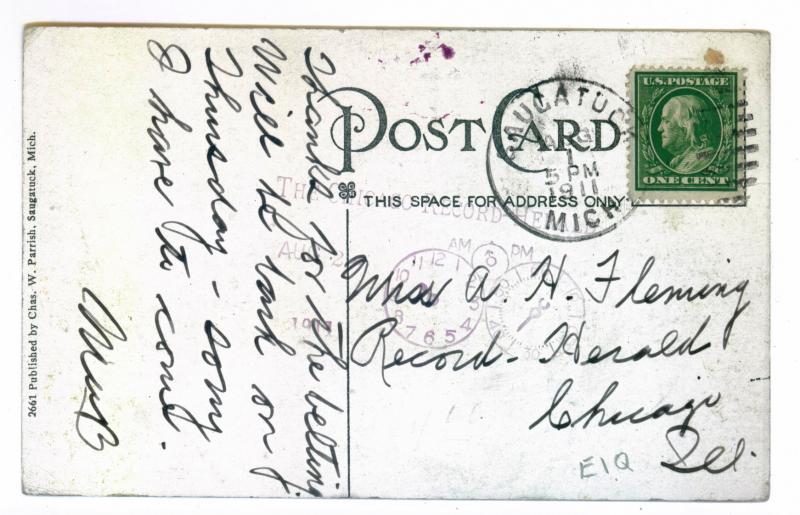 2661 Published by Chas. W. Parrish, Saugatuck, Mich.
Thanks for the belting
Will be back on
Thursday - sorry
I have to come.
POST CARD
THIS SPACE FOR ADDRESS ONLY
SAUGATUCK
AUG
1
5 PM
1911
MICH
U.S. POSTAGE
ONE CENT
THE CHICAGO RECORD-HERALD
AUG 2
1911
AM PM
11 12 1
10
8
7 6 5 4
30
Miss A. H. Fleming
Record-Herald
Chicago
Ill.
E1Q